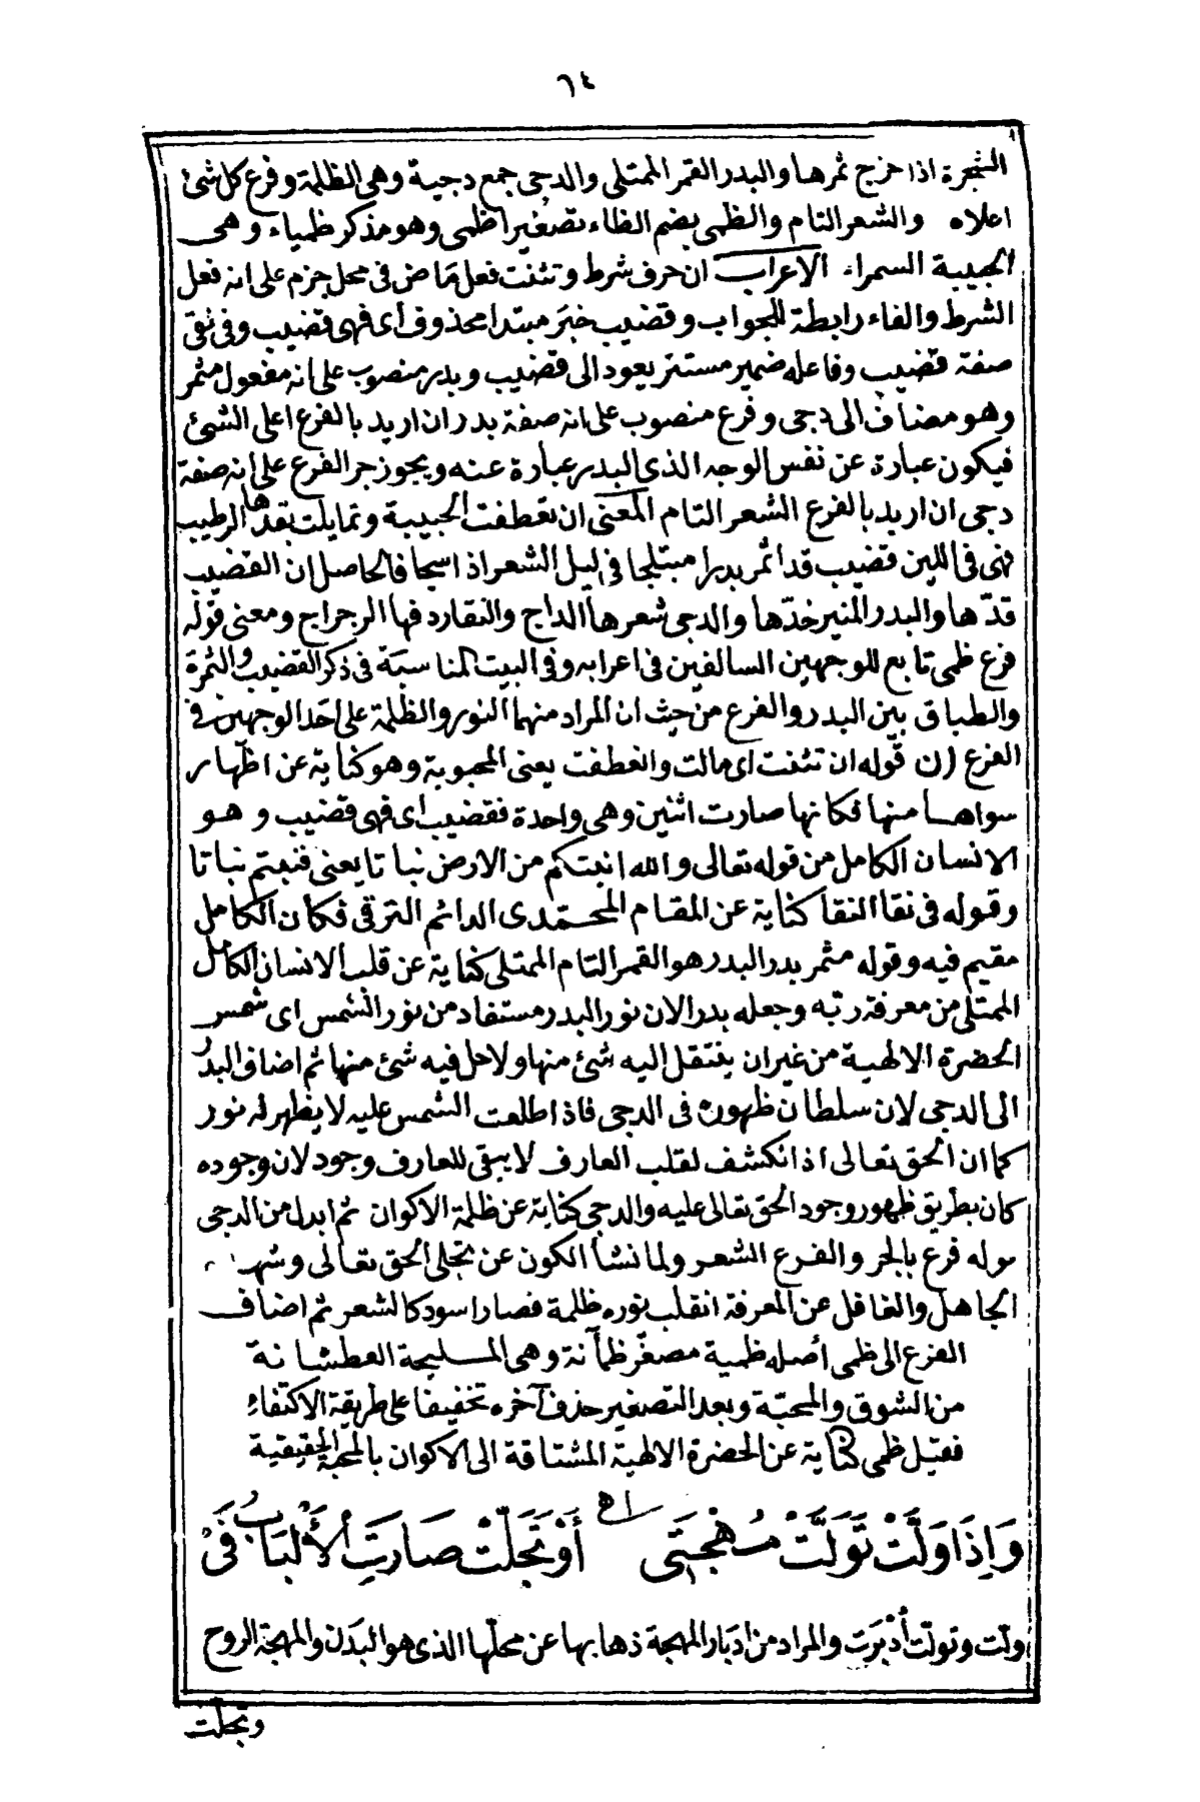 ٦٤
الشجرة اذا خرج ثمرها والبدر القمر الممتلى والدجى جمع دجية وهى الظلمة وفرع كل شئ
اعلاه والشعر التام والظمى بضم الظاء تصغير اظمى وهو مذكر ظمياء وهى
الحبيبة السمراء الاعراب ان حرف شرط وتثنت فعل ماض فى محل جزم على انه فعل
الشرط والفاء رابطة للجواب وقضيب خبر مبتدا محذوف أى فهى قضيب وفى نقى
صفة قضيب وفاعله ضمير مستتر يعود الى قضيب وبدر منصوب على انه مفعول مثمر
وهو مضاف الى دجى وفرع منصوب على انه صفة بدر ان اريد بالفرع اعلى الشئ
فيكون عبارة عن نفس الوجه الذى البدر عبارة عنه ويجوز جر الفرع على انه صفة
دجى ان اريد بالفرع الشعر التام المعنى ان تعطفت الحبيبة وتمايلت بقدها الرطيب
فهى فى اللين قضيب قد اثمر بدرا مبتلجا فى ليل الشعر اذا سجا فالحاصل ان القضيب
قدّها والبدر المنير خدّها والدجى شعرها الداج والنقا ردفها الرجراج ومعنى قوله
فرع ظمى تابع للوجهين السالفين فى اعرابه وفى البيت المناسبة فى ذكر القضيب والثمرة
والطباق بين البدر والفرع من حيث ان المراد منهما النور والظلمة على احد الوجهين فى
الفرع (ن قوله ان تثنت اى مالت وانعطفت يعنى المحبوبة وهو كناية عن اظهار
سواها منها فكانها صارت اثنين وهى واحدة فقضيب اى فهى قضيب وهو
الانسان الكامل من قوله تعالى والله انبتكم من الارض نباتا يعنى فنبتم نباتا
وقوله فى نقا النقا كناية عن المقام المحمّدى الدائم الترقى فكان الكامل
مقيم فيه وقوله مثمر بدر البدر هو القمر التام الممتلى كناية عن قلب الانسان الكامل
الممتلى من معرفة ربّه وجعله بدرا لان نور البدر مستفاد من نور الشمس اى شمس
الحضرة الالهية من غير ان ينتقل اليه شئ منها ولا حل فيه شئ منها ثم اضاف البدر
الى الدجى لان سلطان ظهوره فى الدجى فاذا طلعت الشمس عليه لا يظهر له نور
كما ان الحق تعالى اذا انكشف لقلب العارف لا يبقى للعارف وجود لان وجوده
كان بطريق ظهور وجود الحق تعالى عليه والدجى كناية عن ظلمة الاكوان ثم ابدل من الدجى
قوله فرع بالجر والفرع الشعر ولما نشأ الكون عن تجلى الحق تعالى وشهد
الجاهل والغافل عن المعرفة انقلب نوره ظلمة فصار اسود كالشعر ثم اضاف
الفرع الى ظمى أصله ظمية مصغّر ظمآنة وهى المليحة العطشانة
من الشوق والمحبّة وبعد التصغير حذف آخره تخفيفا على طريقة الاكتفاءِ
فقيل ظمى كناية عن الحضرة الالهية المشتاقة الى الاكوان بالمحبة الحقيقية
اه
وَاِذَا وَلَّتْ تَوَلَّتْ مُهْجَتِى أَوْ تَجَلَّتْ صَارَتِ الْأَلْبَابُ فَىْ
ولّت وتولّت أدْبَرَت والمراد من ادبار المهجة ذهابها عن محلّها الذى هو البدَن والمهجة الروح
وتجلّت